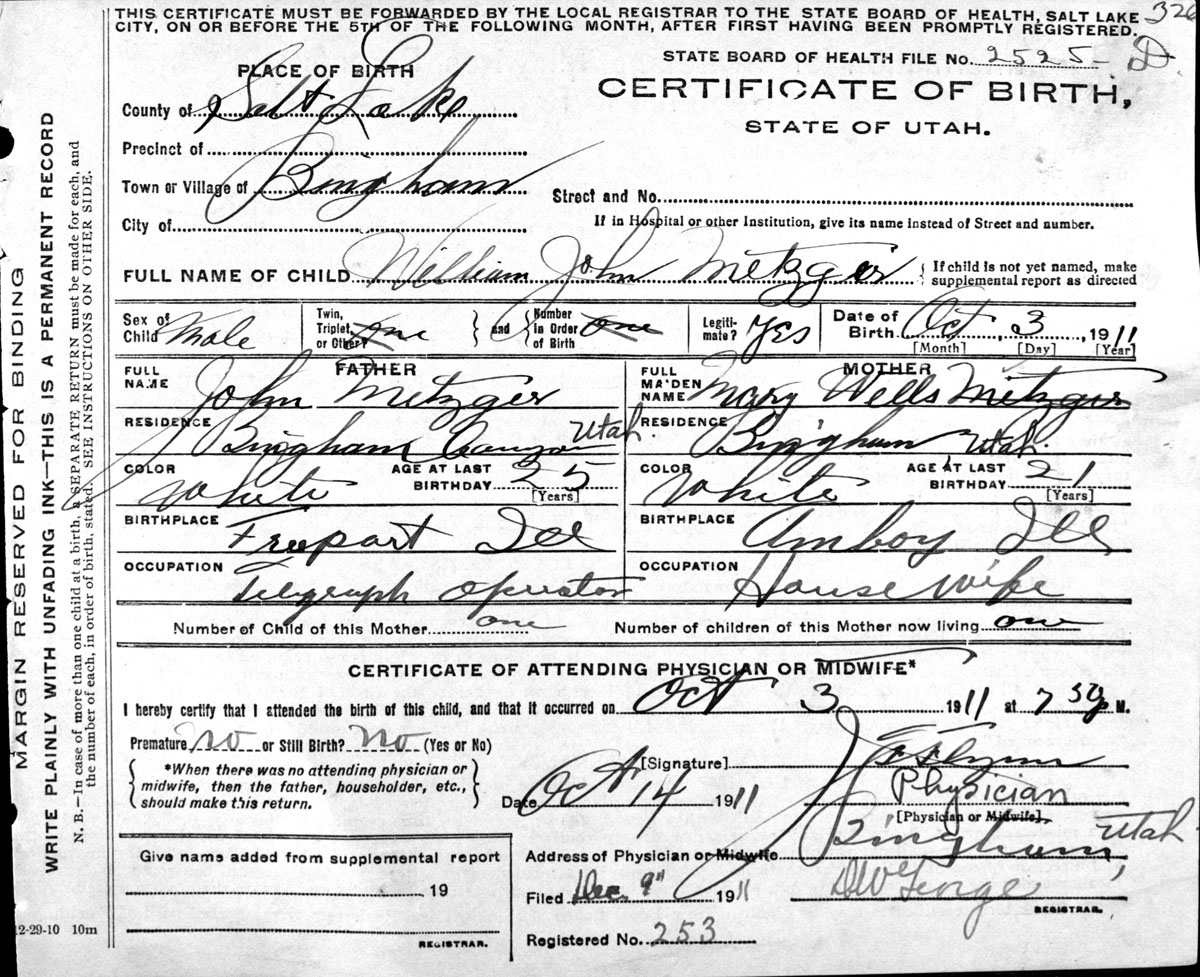 THIS CERTIFICATE MUST BE FORWARDED BY THE LOCAL REGISTRAR TO THE STATE BOARD OF HEALTH, SALT LAKE 326
CITY, ON OR BEFORE THE 5TH OF THE FOLLOWING MONTH, AFTER FIRST HAVING BEEN PROMPTLY REGISTERED.
STATE BOARD OF HEALTH FILE No. 2525-D
PLACE OF BIRTH
CERTIFICATE OF BIRTH,
STATE OF UTAH.
County of Salt Lake
Precinct of
Town or Village of Bingham
Street and No.
City of
If in Hospital or other Institution, give its name instead of Street and number.
FULL NAME OF CHILD William John Metzger { If child is not yet named, make
supplemental report as directed
Sex of Child Male
Twin, Triplet or Other? One
and
Number in Order of Birth One
Legiti- mate? Yes
Date of Birth Oct 3, 1911
[Month] [Day] [Year]
FATHER
FULL NAME John Metzger
RESIDENCE Bingham Canyon Utah.
COLOR White
AGE AT LAST BIRTHDAY 25
[Years]
BIRTHPLACE Freeport Ill
OCCUPATION Telegraph Operator
MOTHER
FULL MAIDEN NAME Mary Wells Metzger
RESIDENCE Bingham Utah.
COLOR White
AGE AT LAST BIRTHDAY 21
[Years]
BIRTHPLACE Amboy Ill
OCCUPATION House wife
Number of Child of this Mother one
Number of children of this Mother now living one
CERTIFICATE OF ATTENDING PHYSICIAN OR MIDWIFE*
I hereby certify that I attended the birth of this child, and that it occurred on Oct 3 1911 at 7 30 P M.
Premature No or Still Birth? No (Yes or No)
{ *When there was no attending physician or
midwife, then the father, householder, etc.,
should make this return. }
[Signature] Flynn
Date Oct 14 1911
Physician
[Physician or Midwife]
Address of Physician or Midwife Bingham, Utah
Filed Dec. 9" 1911
George
REGISTRAR.
Registered No. 253
Give name added from supplemental report
19
REGISTRAR.
12-29-10 10m
MARGIN RESERVED FOR BINDING
WRITE PLAINLY WITH UNFADING INK—THIS IS A PERMANENT RECORD
N. B.—In case of more than one child at a birth, a SEPARATE RETURN must be made for each, and
the number of each, in order of birth, stated. SEE INSTRUCTIONS ON OTHER SIDE.